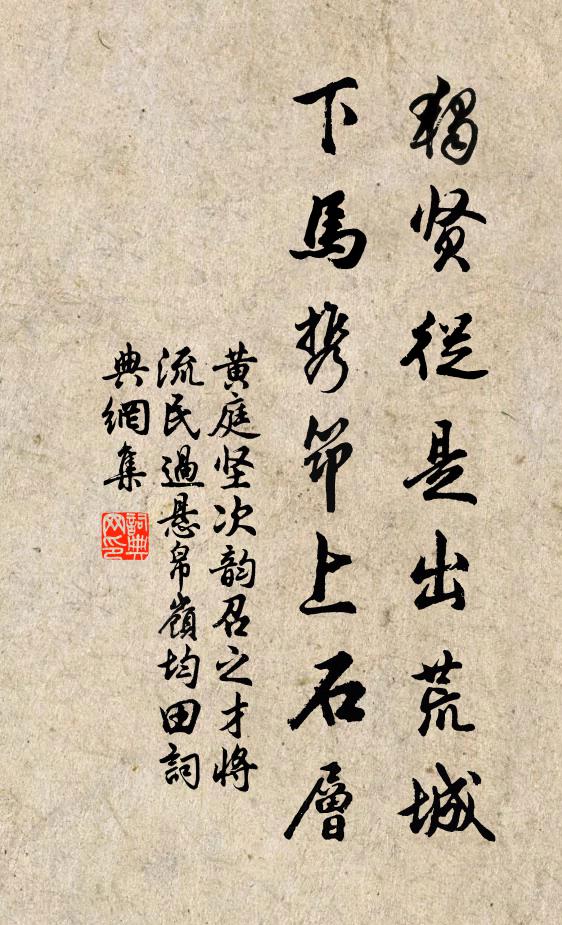 獨贤從是出荒城
下馬携笻上石層
黄庭坚次韵召之才将
流民過悬帛嶺均田詞
典網集
詞典
网印